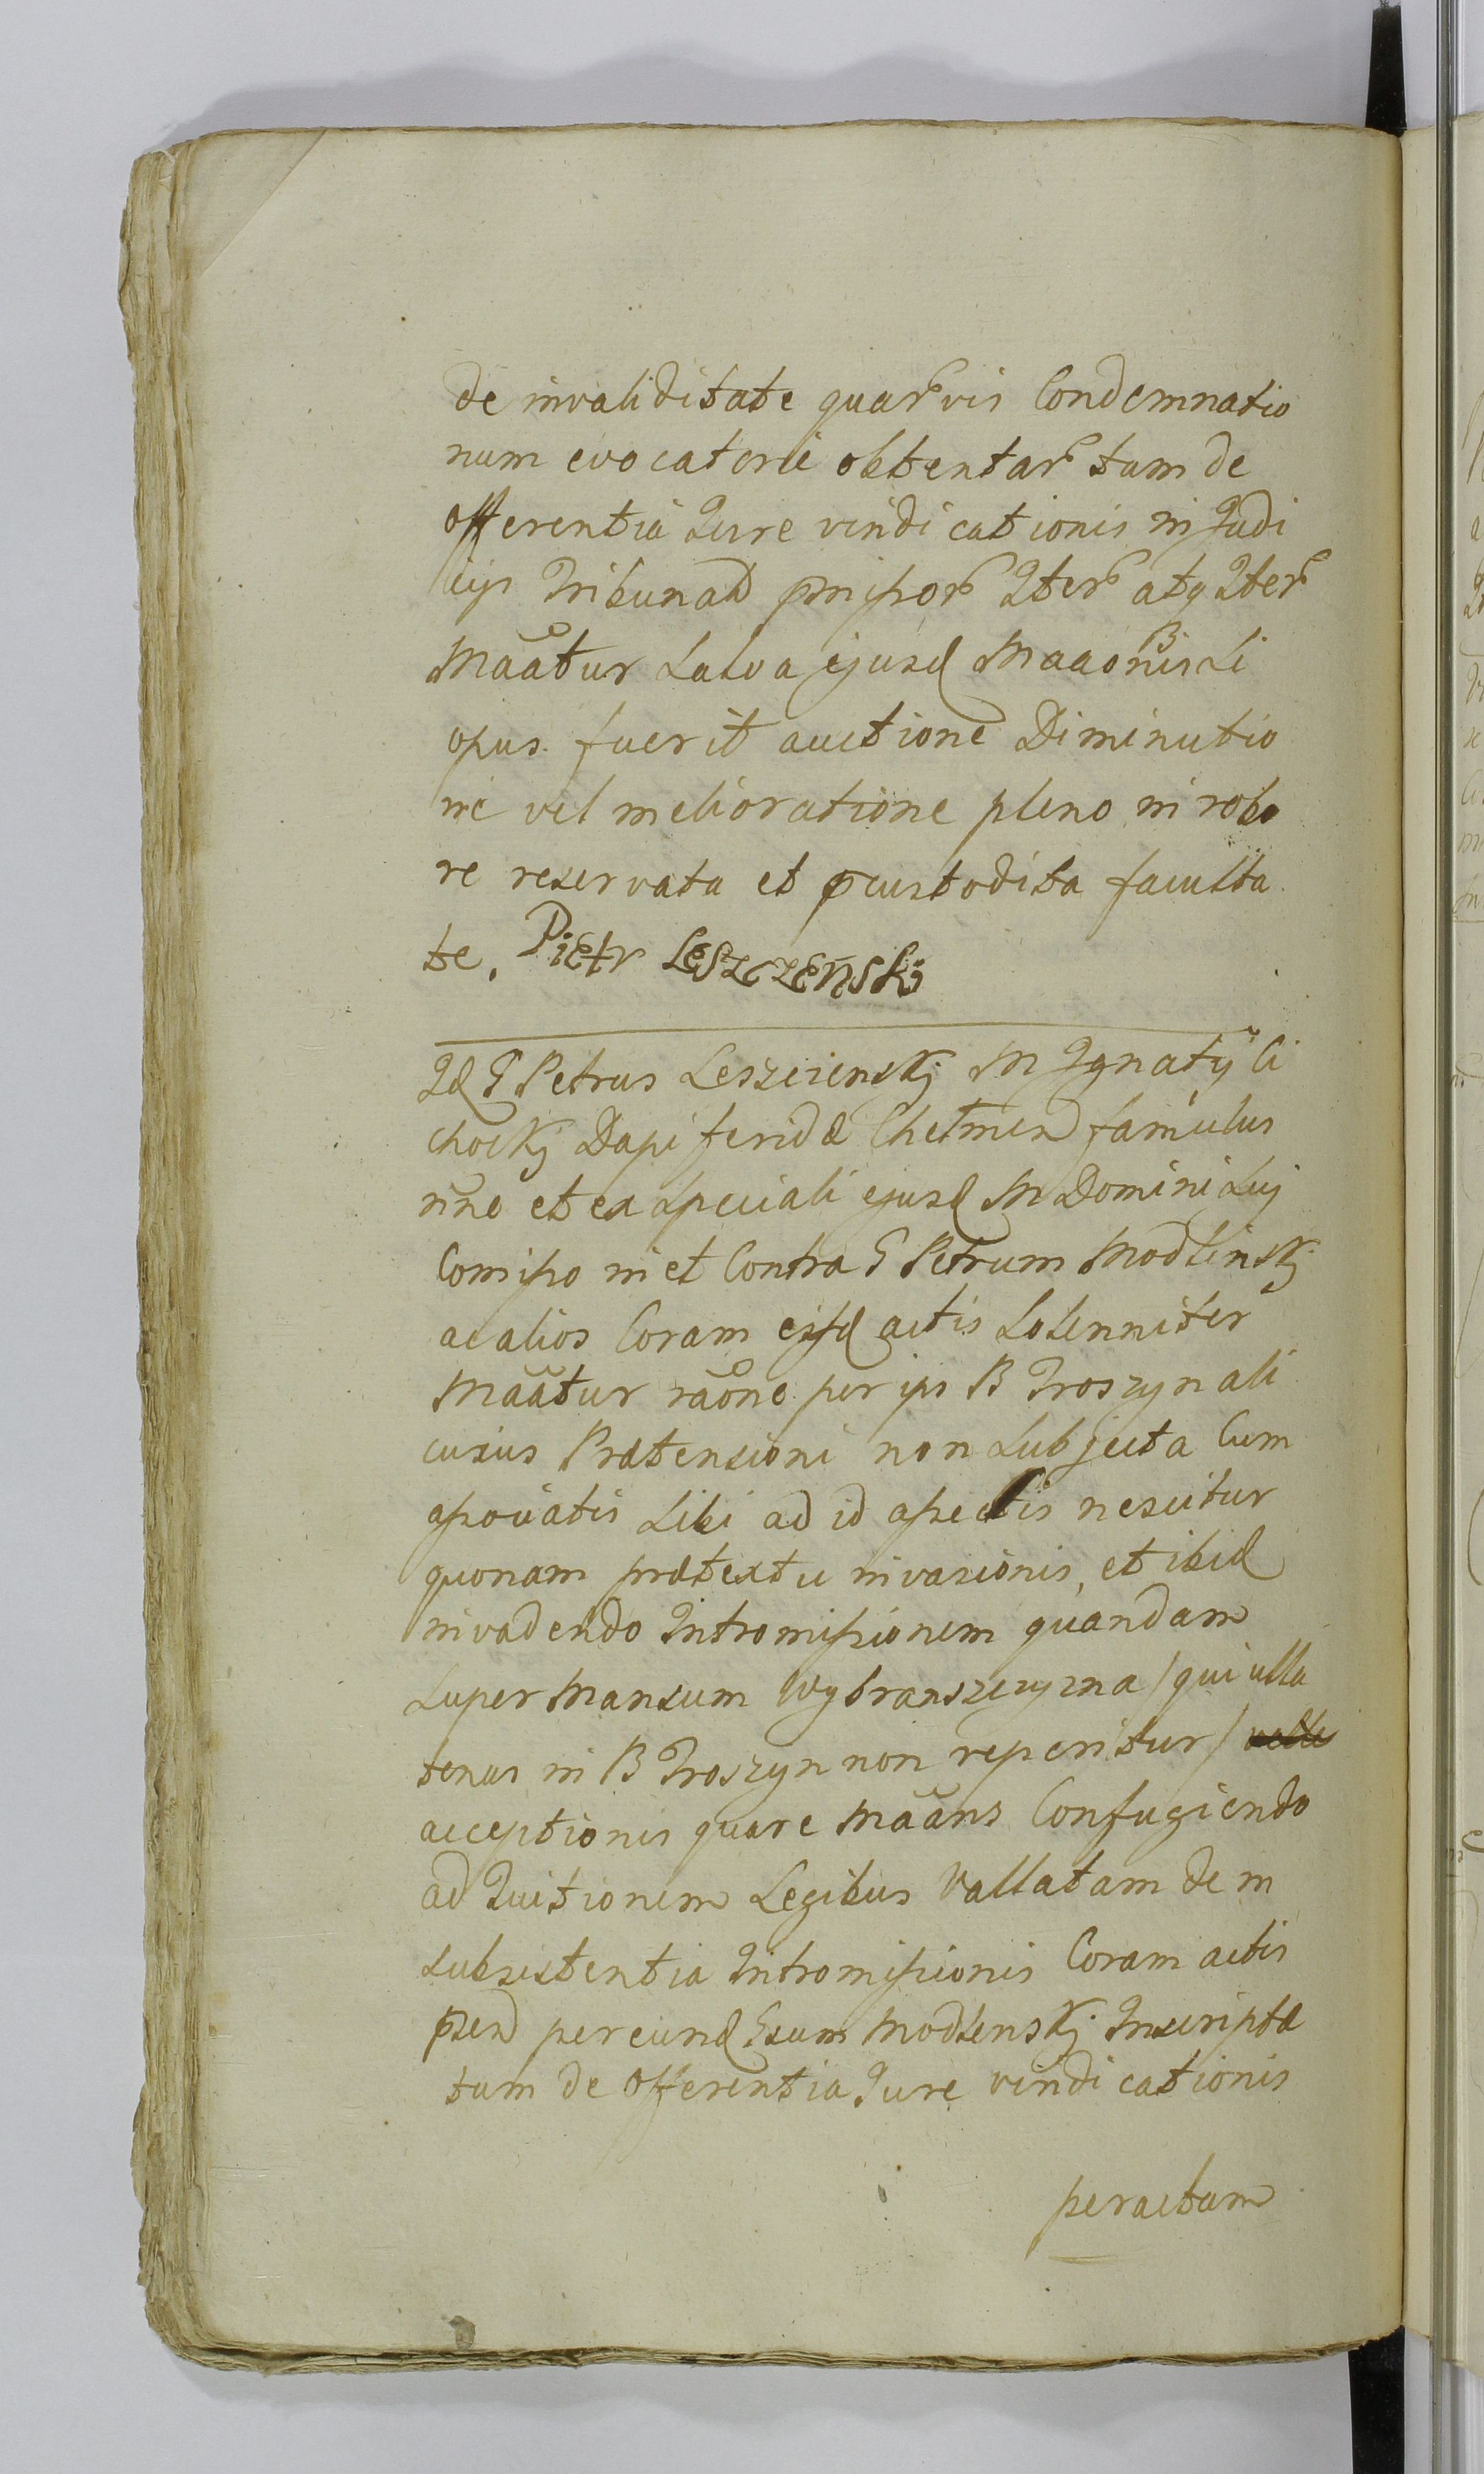 de invaliditate quarvis Condemnatio
num evocatorie obtentar tum de
offerentia Jure vindicationis in Judi
cijs Tribunal pmissor Iter atq Iter
Maãtur Salva ejusd Maaonis si
opus fuerit auctione Diminutio
ne vel melioratione pleno in robo
re reservata et pcustodita faculta
te. Pietr Leszczenski
Id G Petrus Leszcienskj M Ignatÿ Ci
chockj Dapiferidæ Chelmen famulus
nñe et ex speciali ejusd M Domini sui
Comisso in et Contra G Petrum Modlinskj
ac alios Coram eisd actis Solenniter
Maãtur raõne per ips B Troszyn ali
cuius Prætensioni non Subjecta Cum
assoviatis Sibi ad id asseclis nescitur
quonam prætextu invasionis, et ibid
invadendo Intromissionem quandam
Super Mansum Wybranszczyzna / qui ulla
tenus in B Troszyn non reperitur /
acceptionis quare Maãns Confugiendo
ad Tuitionem Legibus Vallatam de in
subsistentia Intromissionis Coram actis
psen per eund Gsum Modlenskj Inscriptæ
tum de offerentia Jure vindicationis
peractum